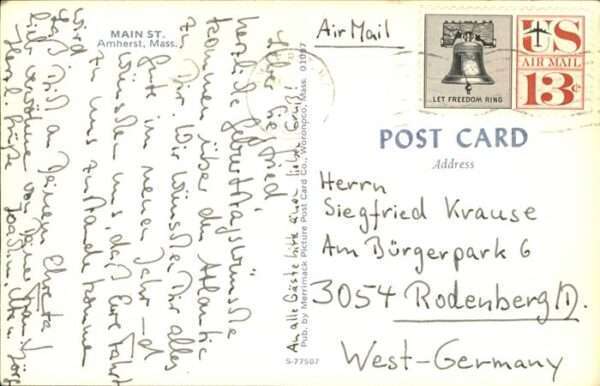 MAIN ST.
Amherst, Mass.
Lieber Siegfried,
herzliche Geburtstagswünsche
kommen über den Atlantic
zu Dir. Wir wünschen Dir alles
Gute im neuen Jahr - d
wünschen uns, daß Eure Fahrt
zu uns zustande kommen
wird.
Laß Dich an Deinem Ehrentag
lieb verwöhnen von Deiner
Herzl. Grüße Joachim,
An alle Gäste bitte einen lieben Gruß!
Pub. by Merrimack Picture Post Card Co., Woronoco, Mass. 01097
S-77507
Air Mail
LET FREEDOM RING
US
AIR MAIL
13c
POST CARD
Address
Herrn
Siegfried Krause
Am Bürgerpark 6
3054 Rodenberg/D.
West-Germany